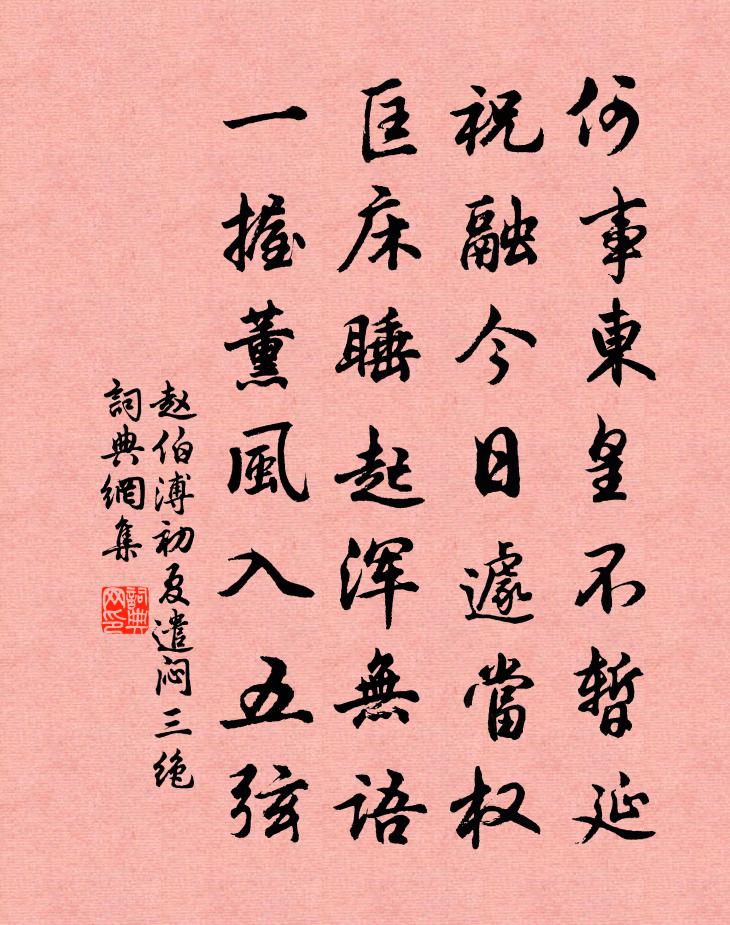 何事東皇不暫延
祝融今日遽當权
匡床睡起浑無語
一握薰風入五弦
赵伯溥初夏遣闷三绝
詞典網集
詞典网印